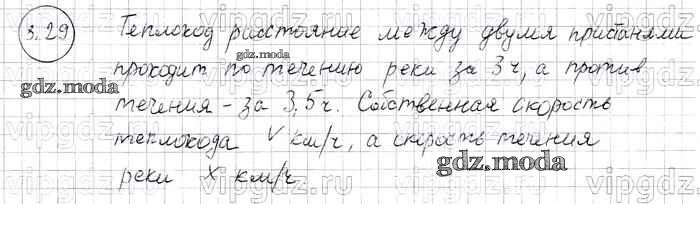 3.29 Теплоход расстояние между двумя пристанями
проходит по течению реки за 3ч, а против
gdz.moda
течения - за 3,5ч. Собственная скорость
теплохода V км/ч, а скорость течения
gdz.moda
реки x км/ч
vipgdz.ru